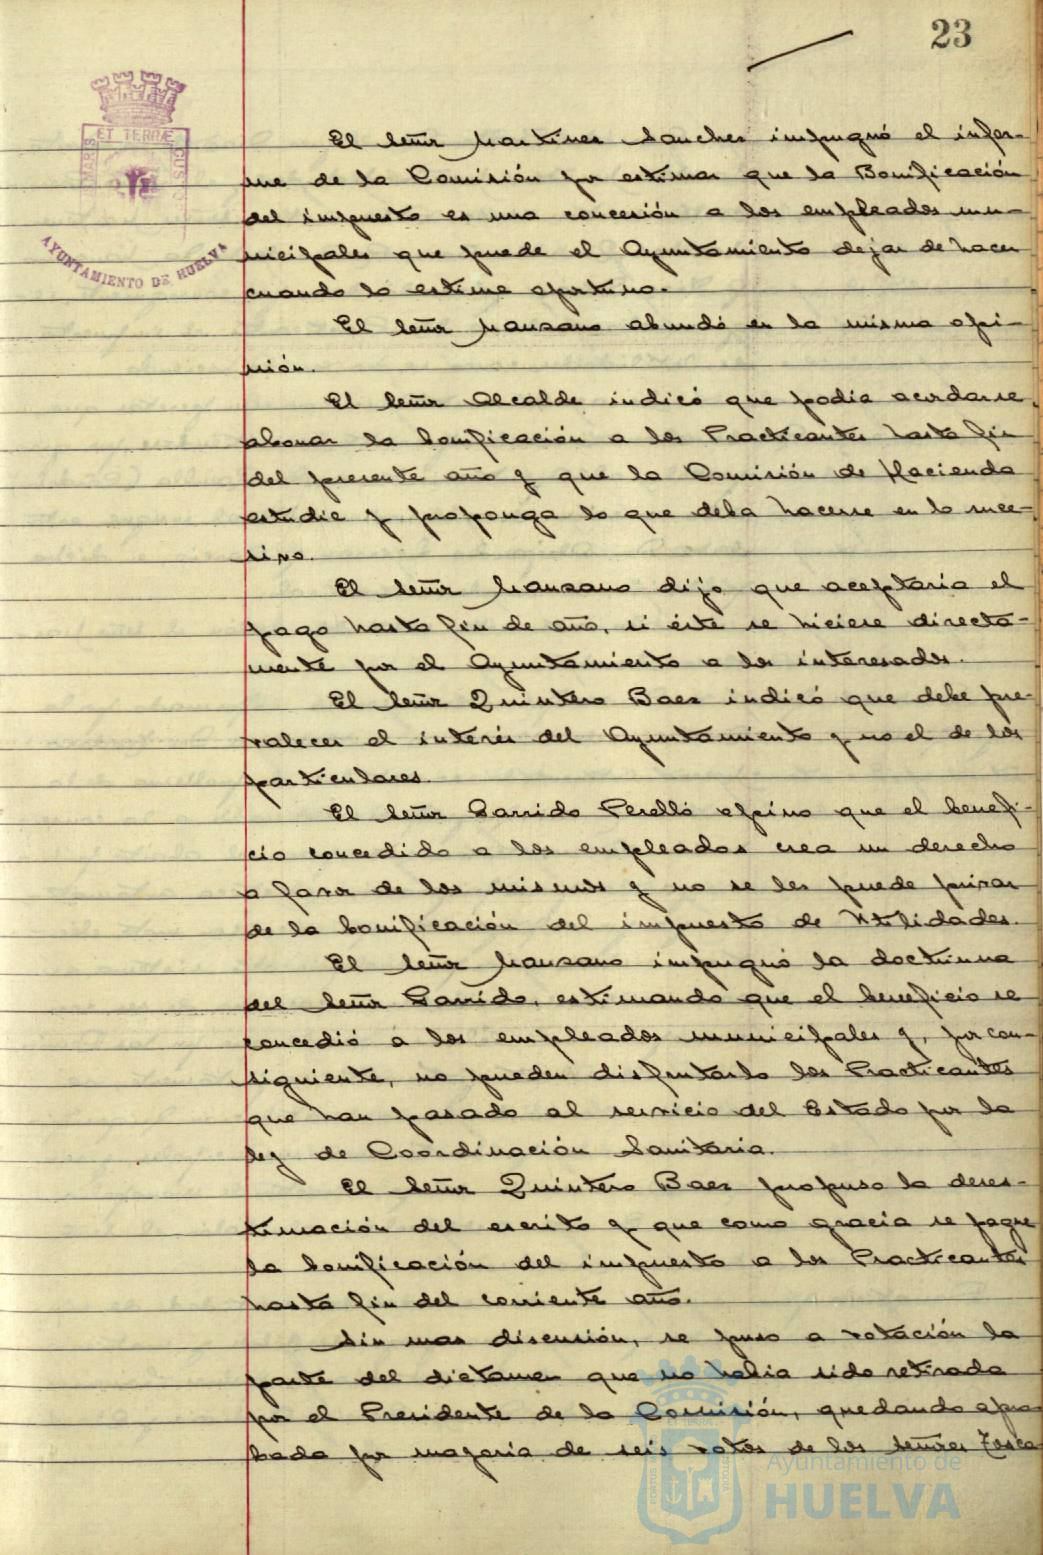 23
ET TERRÆ
MARIS
CUS
AYUNTAMIENTO DE HUELVA
El Señor Martinez Sanchez impugnó el infor-
me de la Comisión por estimar que la Bonificación
del impuesto es una concesión a los empleados mu-
nicipales que puede el Ayuntamiento dejar de hacer
cuando lo estime oportuno.
El Señor Manzano abundó en la misma opi-
nión.
El Señor Alcalde indicó que podia acordarse
abonar la bonificación a los Practicantes hasta fin
del presente año y que la Comisión de Hacienda
estudie y proponga lo que deba hacerse en lo suce-
sivo.
El Señor Manzano dijo que aceptaria el
pago hasta fin de año, si éste se hiciese directa-
mente por el Ayuntamiento a los interesados.
El Señor Quintero Baez indicó que debe pre-
valecer el interés del Ayuntamiento y no el de los
particulares.
El Señor Garrido Perelló opino que el benefi-
cio concedido a los empleados crea un derecho
a favor de los mismos y no se les puede privar
de la bonificación del impuesto de Utilidades.
El Señor Manzano impugnó la doctrina
del Señor Garrido, estimando que el beneficio se
concedió a los empleados municipales y, por con-
siguiente, no pueden disfrutarlo los Practicantes
que han pasado al servicio del Estado por la
ley de Coordinación Sanitaria.
El Señor Quintero Baez propuso la deses-
timación del escrito y que como gracia se pague
la bonificación del impuesto a los Practicantes
hasta fin del corriente año.
Sin mas discusión, se puso a votación la
parte del dictamen que no habia sido retirada
por el Presidente de la Comisión, quedando apro
bada por mayoria de seis votos de los Señores Tosca
Ayuntamiento de
HUELVA